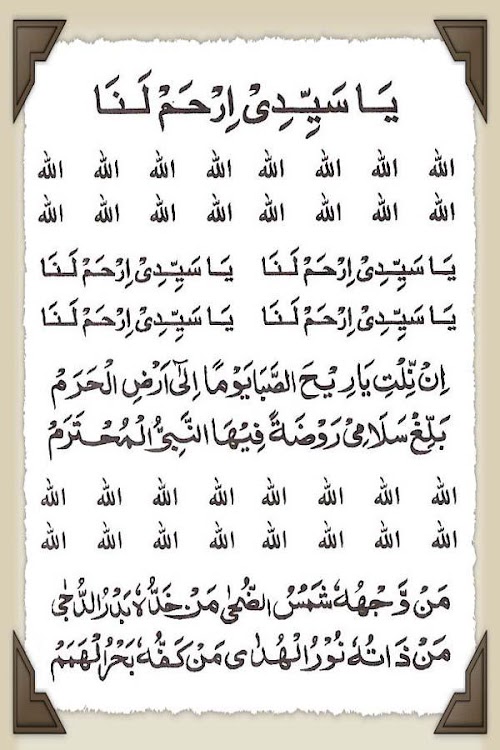 يَا سَيِّدِىْ اِرْحَمْ لَنَا
الله الله الله الله الله الله الله الله
الله الله الله الله الله الله الله الله
يَا سَيِّدِىْ اِرْحَمْ لَنَا يَا سَيِّدِىْ اِرْحَمْ لَنَا
يَا سَيِّدِىْ اِرْحَمْ لَنَا يَا سَيِّدِىْ اِرْحَمْ لَنَا
اِنْ نِّلْتِ يَارِيْحَ الصَّبَا يَوْمًا اِلٰى اَرْضِ الْحَرَمْ
بَلِّغْ سَلَامِىْ رَوْضَةً فِيْهَا النَّبِىُّ الْمُحْتَرَمْ
الله الله الله الله الله الله الله الله
الله الله الله الله الله الله الله الله
مَنْ وَّجْهُهٗ شَمْسُ الضُّحٰى مَنْ خَدُّهٗ بَدْرُ الدُّجٰى
مَنْ ذَاتُهٗ نُوْرُ الْهُدٰى مَنْ كَفُّهٗ بَحْرُ الْهَمَمْ